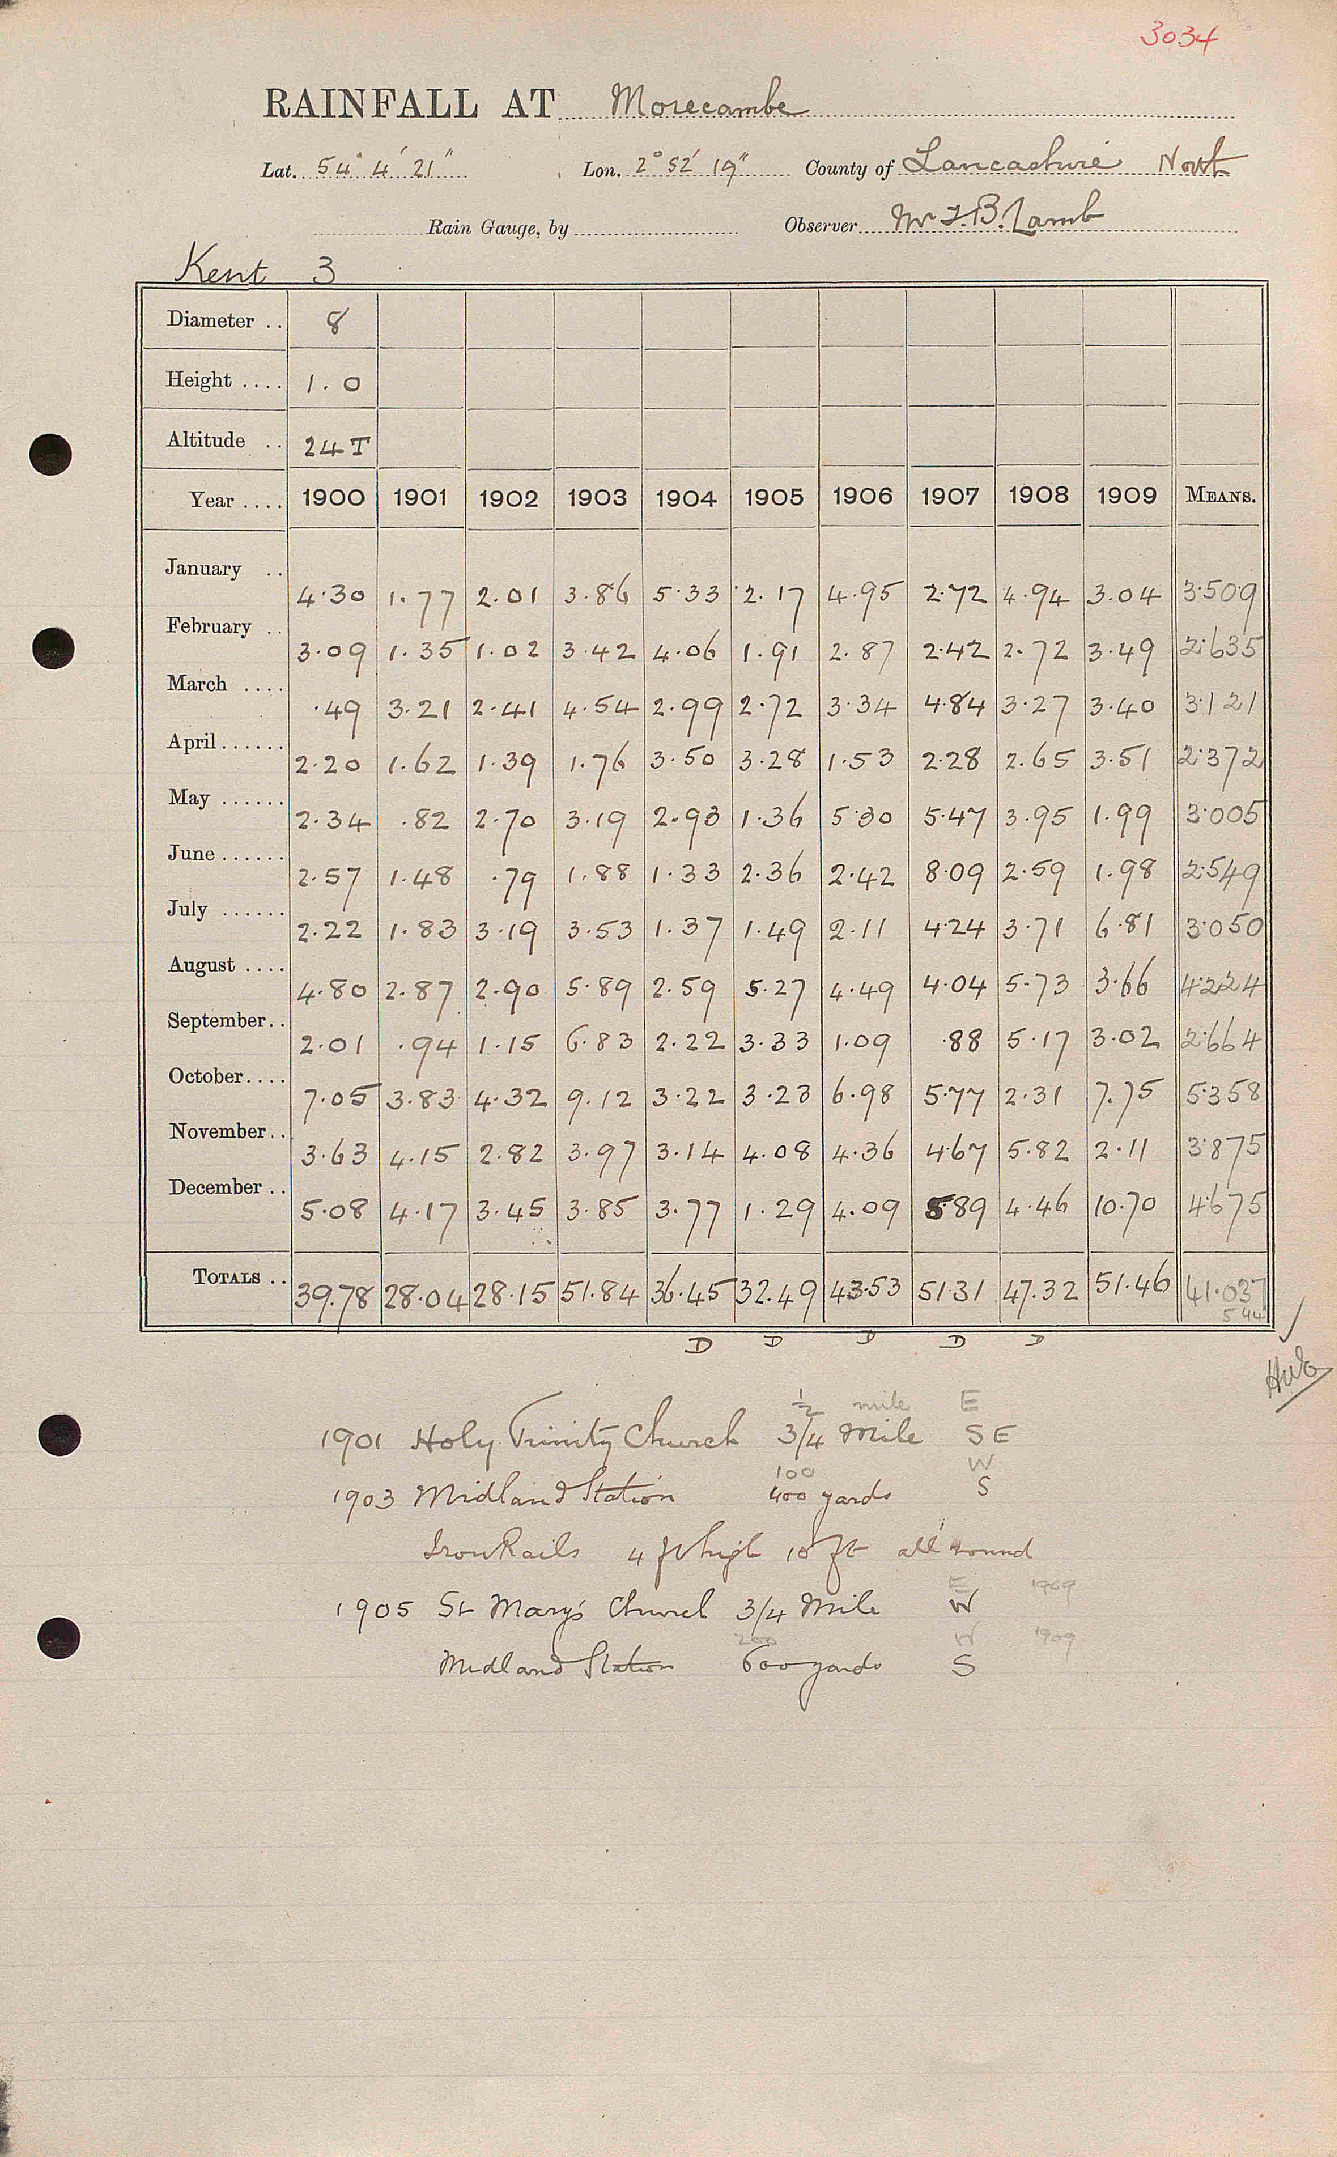 3034
RAINFALL AT Morecambe
Lat. 54° 4' 21" Lon. 2° 52' 19" County of Lancashire North
Rain Gauge, by Observer Mr J. B. Lamb
Kent 3
Diameter .. 8
Height .... 1.0
Altitude .. 24 T
Year .... 1900 1901 1902 1903 1904 1905 1906 1907 1908 1909 MEANS.
January .. 4.30 1.77 2.01 3.86 5.33 2.17 4.95 2.72 4.94 3.04 3.509
February .. 3.09 1.35 1.02 3.42 4.06 1.91 2.87 2.42 2.72 3.49 2.635
March .... .49 3.21 2.41 4.54 2.99 2.72 3.34 4.84 3.27 3.40 3.121
April ...... 2.20 1.62 1.39 1.76 3.50 3.28 1.53 2.28 2.65 3.51 2.372
May ...... 2.34 .82 2.70 3.19 2.93 1.36 5.30 5.47 3.95 1.99 3.005
June ...... 2.57 1.48 .79 1.88 1.33 2.36 2.42 8.09 2.59 1.98 2.549
July ...... 2.22 1.83 3.19 3.53 1.37 1.49 2.11 4.24 3.71 6.81 3.050
August .... 4.80 2.87 2.90 5.89 2.59 5.27 4.49 4.04 5.73 3.66 4.224
September.. 2.01 .94 1.15 6.83 2.22 3.33 1.09 .88 5.17 3.02 2.664
October.... 7.05 3.83 4.32 9.12 3.22 3.23 6.98 5.77 2.31 7.75 5.358
November.. 3.63 4.15 2.82 3.97 3.14 4.08 4.36 4.67 5.82 2.11 3.875
December .. 5.08 4.17 3.45 3.85 3.77 1.29 4.09 5.89 4.46 10.70 4.675
TOTALS .. 39.78 28.04 28.15 51.84 36.45 32.49 43.53 51.31 47.32 51.46 41.037
D D D D D
1/2 mile E
1901 Holy Trinity Church 3/4 Mile SE
100 W
1903 Midland Station 400 yards S
Iron Rails 4 ft high 10 ft all round
E 1909
1905 St Mary's Church 3/4 Mile W
200 W 1909
Midland Station 600 yards S